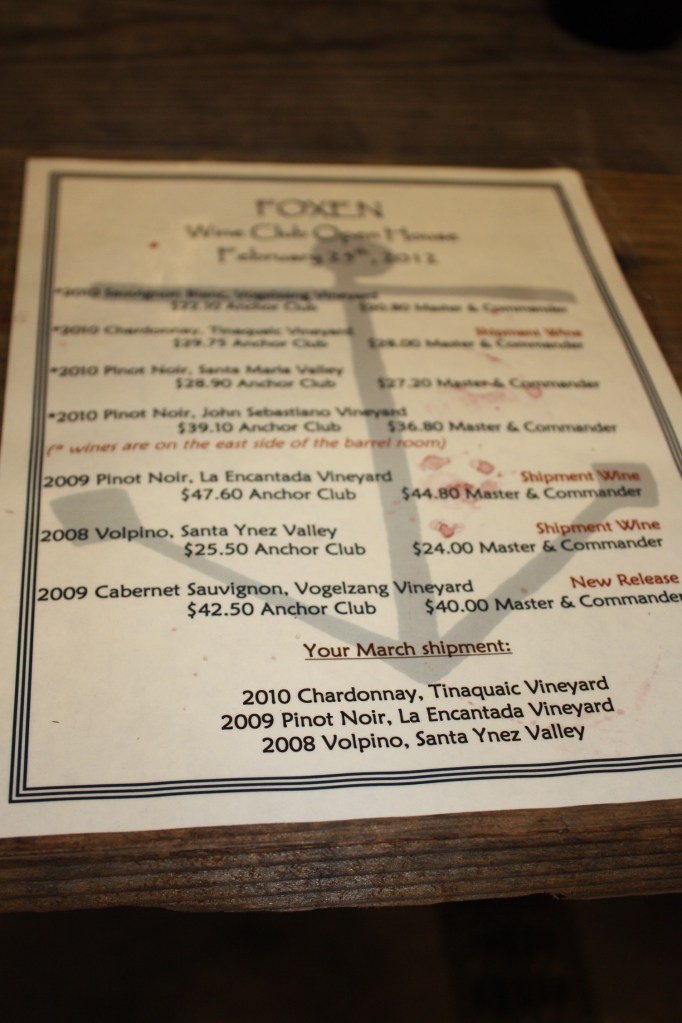 FOXEN
Wine Club Open House
February 25th, 2012
*2010 Sauvignon Blanc, Vogelzang Vineyard
$22.10 Anchor Club $20.80 Master & Commander
*2010 Chardonnay, Tinaquaic Vineyard Shipment Wine
$29.75 Anchor Club $28.00 Master & Commander
*2010 Pinot Noir, Santa Maria Valley
$28.90 Anchor Club $27.20 Master & Commander
*2010 Pinot Noir, John Sebastiano Vineyard
$39.10 Anchor Club $36.80 Master & Commander
(* wines are on the east side of the barrel room)
2009 Pinot Noir, La Encantada Vineyard Shipment Wine
$47.60 Anchor Club $44.80 Master & Commander
2008 Volpino, Santa Ynez Valley Shipment Wine
$25.50 Anchor Club $24.00 Master & Commander
2009 Cabernet Sauvignon, Vogelzang Vineyard New Release
$42.50 Anchor Club $40.00 Master & Commander
Your March shipment:
2010 Chardonnay, Tinaquaic Vineyard
2009 Pinot Noir, La Encantada Vineyard
2008 Volpino, Santa Ynez Valley